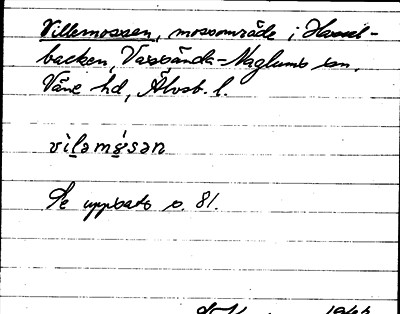 Villemossen, mossområde i Hassel-
backen, Vassända-Naglums sn,
Väne hd, Älvsb. l.
vìləmósən
Se uppsats s. 81.